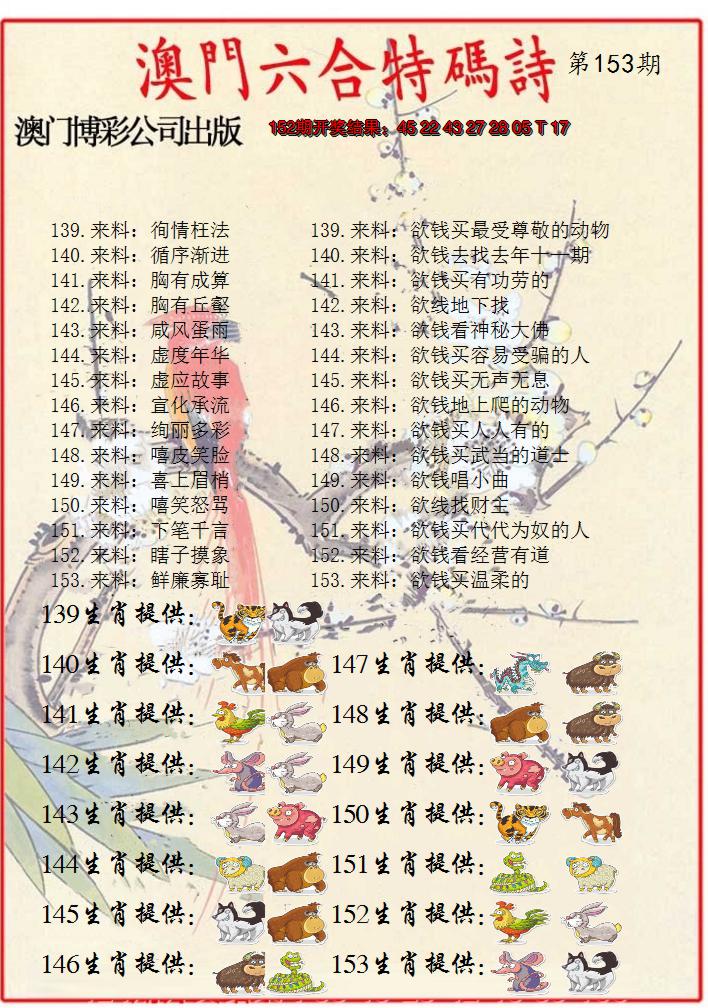 澳門六合特碼詩 第153期
澳门博彩公司出版 152期开奖结果：45 22 43 27 28 05 T 17
139.来料：徇情枉法 139.来料：欲钱买最受尊敬的动物
140.来料：循序渐进 140.来料：欲钱去找去年十一期
141.来料：胸有成算 141.来料：欲钱买有功劳的
142.来料：胸有丘壑 142.来料：欲线地下找
143.来料：咸风蛋雨 143.来料：欲钱看神秘大佛
144.来料：虚度年华 144.来料：欲钱买容易受骗的人
145.来料：虚应故事 145.来料：欲钱买无声无息
146.来料：宣化承流 146.来料：欲钱地上爬的动物
147.来料：绚丽多彩 147.来料：欲钱买人人有的
148.来料：嘻皮笑脸 148.来料：欲钱买武当的道士
149.来料：喜上眉梢 149.来料：欲钱唱小曲
150.来料：嘻笑怒骂 150.来料：欲线找财主
151.来料：下笔千言 151.来料：欲钱买代代为奴的人
152.来料：瞎子摸象 152.来料：欲钱看经营有道
153.来料：鲜廉寡耻 153.来料：欲钱买温柔的
139生肖提供：
140生肖提供： 147生肖提供：
141生肖提供： 148生肖提供：
142生肖提供： 149生肖提供：
143生肖提供： 150生肖提供：
144生肖提供： 151生肖提供：
145生肖提供： 152生肖提供：
146生肖提供： 153生肖提供：